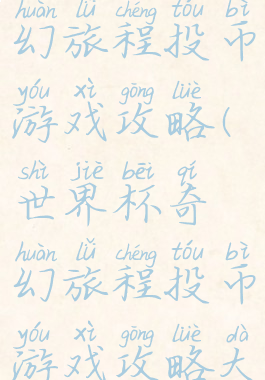 huàn lǚ chéng tóu bì
幻旅程投币
yóu xì gōng lüè
游戏攻略(
shì jiè bēi qí
世界杯奇
huàn lǚ chéng tóu bì
幻旅程投币
yóu xì gōng lüè dà
游戏攻略大